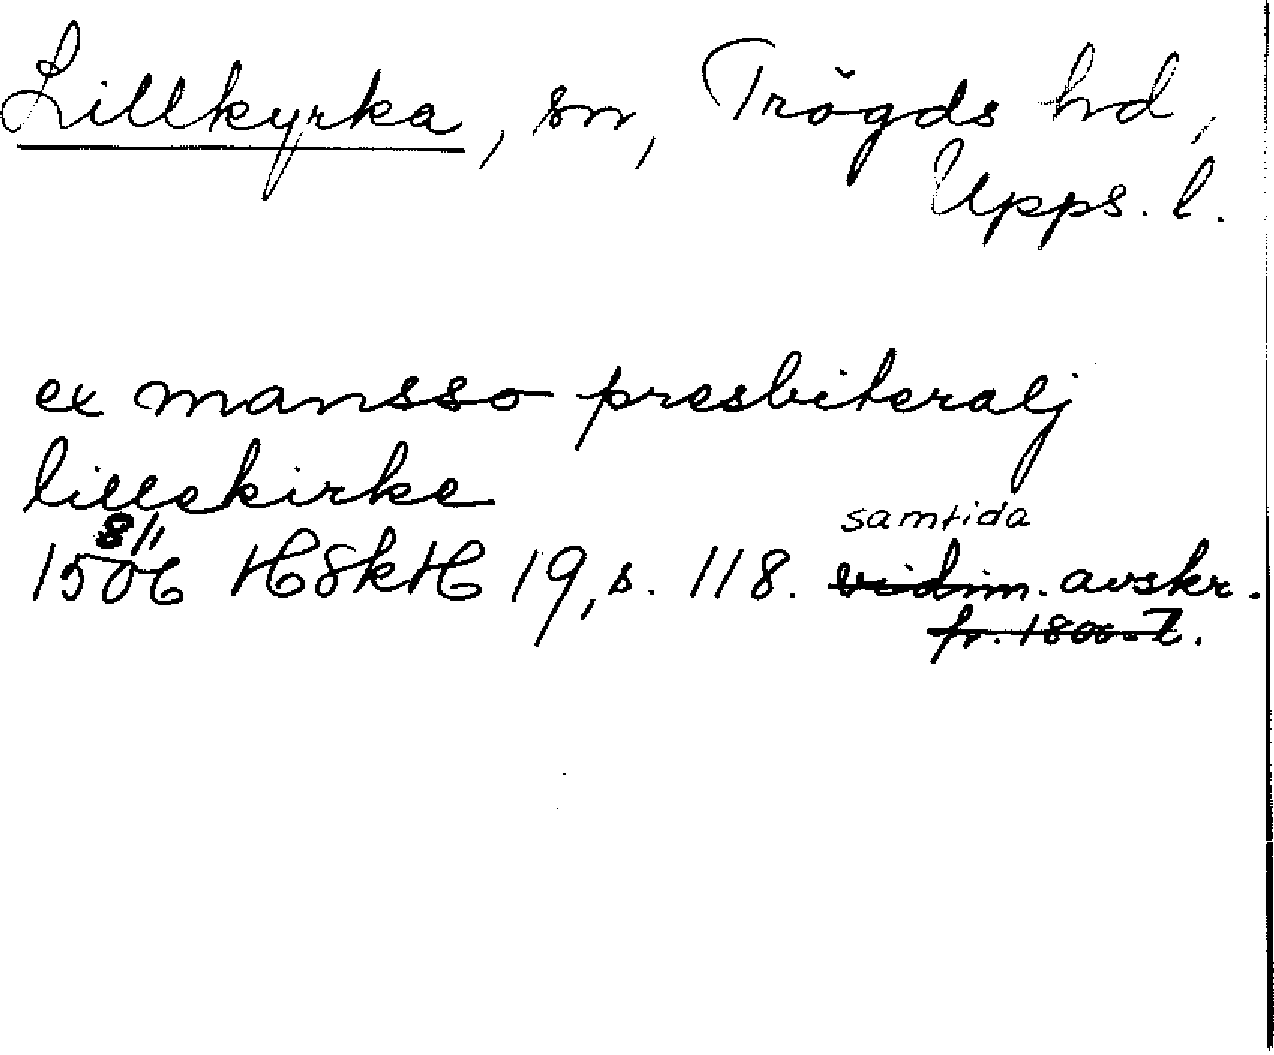 Lillkyrka, sn, Trögds hd,
Upps. l.
ex mansso presbiteralj
lillekirke
samtida
1506 8/11 HSkH 19, s. 118. vidim. avskr.
fr. 1800-t.